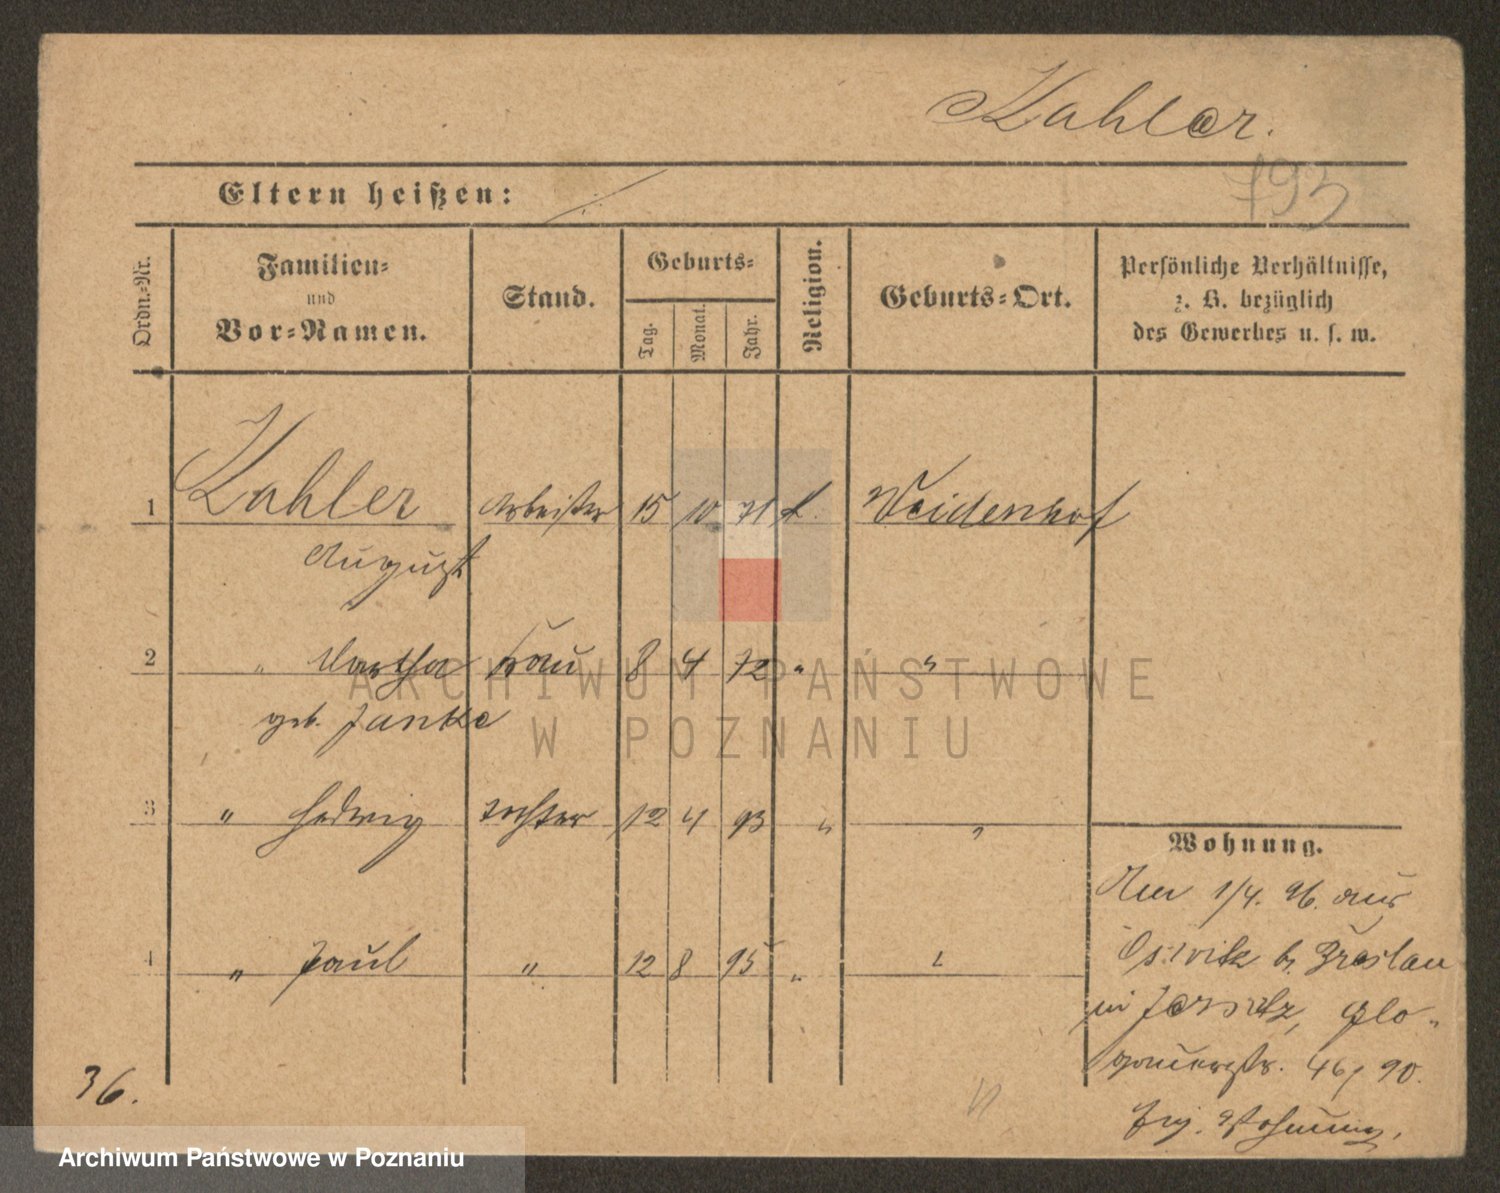 Kahler.
793
Eltern heißen:
Ordn.-Nr.
Familien-
und
Vor-Namen.
Stand.
Geburts-
Tag.
Monat.
Jahr.
Religion.
Geburts-Ort.
Persönliche Verhältnisse,
z. B. bezüglich
des Gewerbes u. s. w.
1 Kahler Arbeiter 15 10 71 k. Weidenhof
August
2 " Martha Frau 8 4 72 " "
geb. Janke
3 " Hedwig Tochter 12 4 93 " "
4 " Paul " 12 8 95 " "
Wohnung.
Am 1/4. 96. aus
Oswitz b. Breslau
in Jersitz, Glo-
gauerstr. 46/90.
Wohnung.
36.
ARCHIWUM PAŃSTWOWE
W POZNANIU
Archiwum Państwowe w Poznaniu